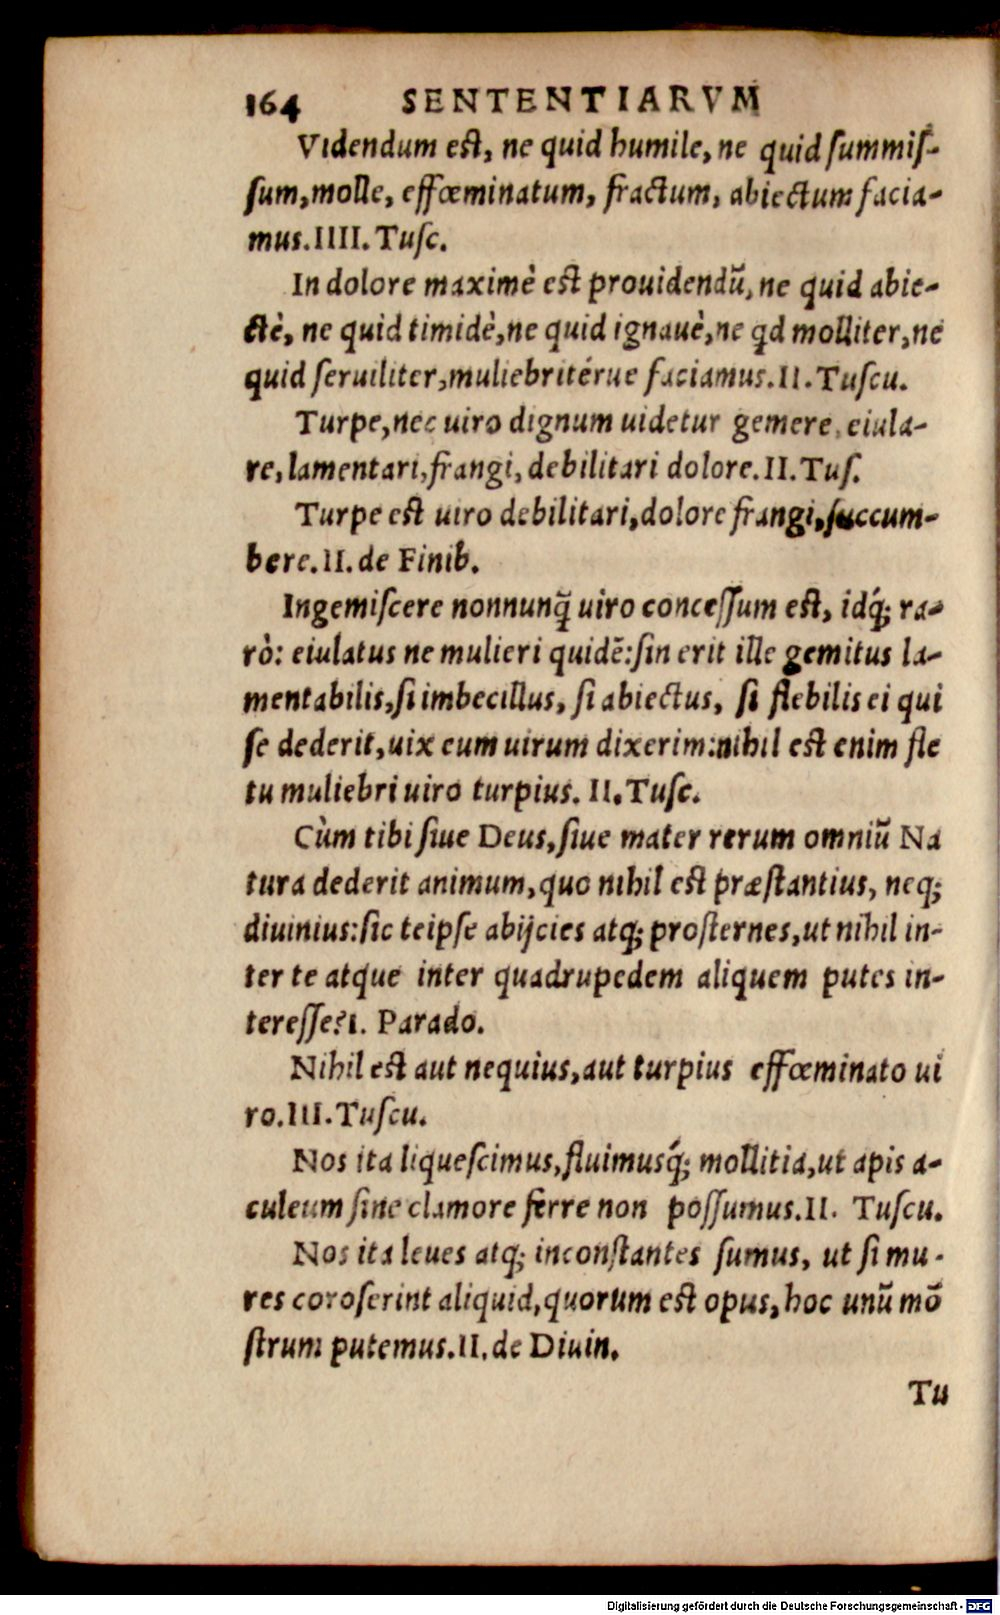 164 SENTENTIARVM
Videndum est, ne quid humile, ne quid summiſ-
ſum, molle, effœminatum, fractum, abiectum facia-
mus. IIII. Tuſc.
In dolore maximè est prouidendũ, ne quid abie-
ctè, ne quid timidè, ne quid ignauè, ne qd molliter, ne
quid ſeruiliter, muliebritérue faciamus. II. Tuſcu.
Turpe, nec uiro dignum uidetur gemere, eiula-
re, lamentari, frangi, debilitari dolore. II. Tuſ.
Turpe est uiro debilitari, dolore frangi, ſuccum-
bere. II. de Finib.
Ingemiſcere nonnunq̃ uiro conceſſum est, idq́; ra-
rò: eiulatus ne mulieri quidẽ: ſin erit ille gemitus la-
mentabilis, ſi imbecillus, ſi abiectus, ſi flebilis ei qui
ſe dederit, uix eum uirum dixerim: nihil est enim fle
tu muliebri uiro turpius. II. Tuſc.
Cùm tibi ſiue Deus, ſiue mater rerum omniũ Na
tura dederit animum, quo nihil est præſtantius, neq;
diuinius: ſic teipſe abijcies atq; proſternes, ut nihil in-
ter te atque inter quadrupedem aliquem putes in-
tereſſe? I. Parado.
Nihil est aut nequius, aut turpius effœminato ui
ro. III. Tuſcu.
Nos ita liqueſcimus, fluimusq́; mollitia, ut apis a-
culeum ſine clamore ferre non poſſumus. II. Tuſcu.
Nos ita leues atq; inconſtantes ſumus, ut ſi mu-
res coroſerint aliquid, quorum est opus, hoc unũ mõ
ſtrum putemus. II. de Diuin.
Tu
Digitalisierung gefördert durch die Deutsche Forschungsgemeinschaft - DFG